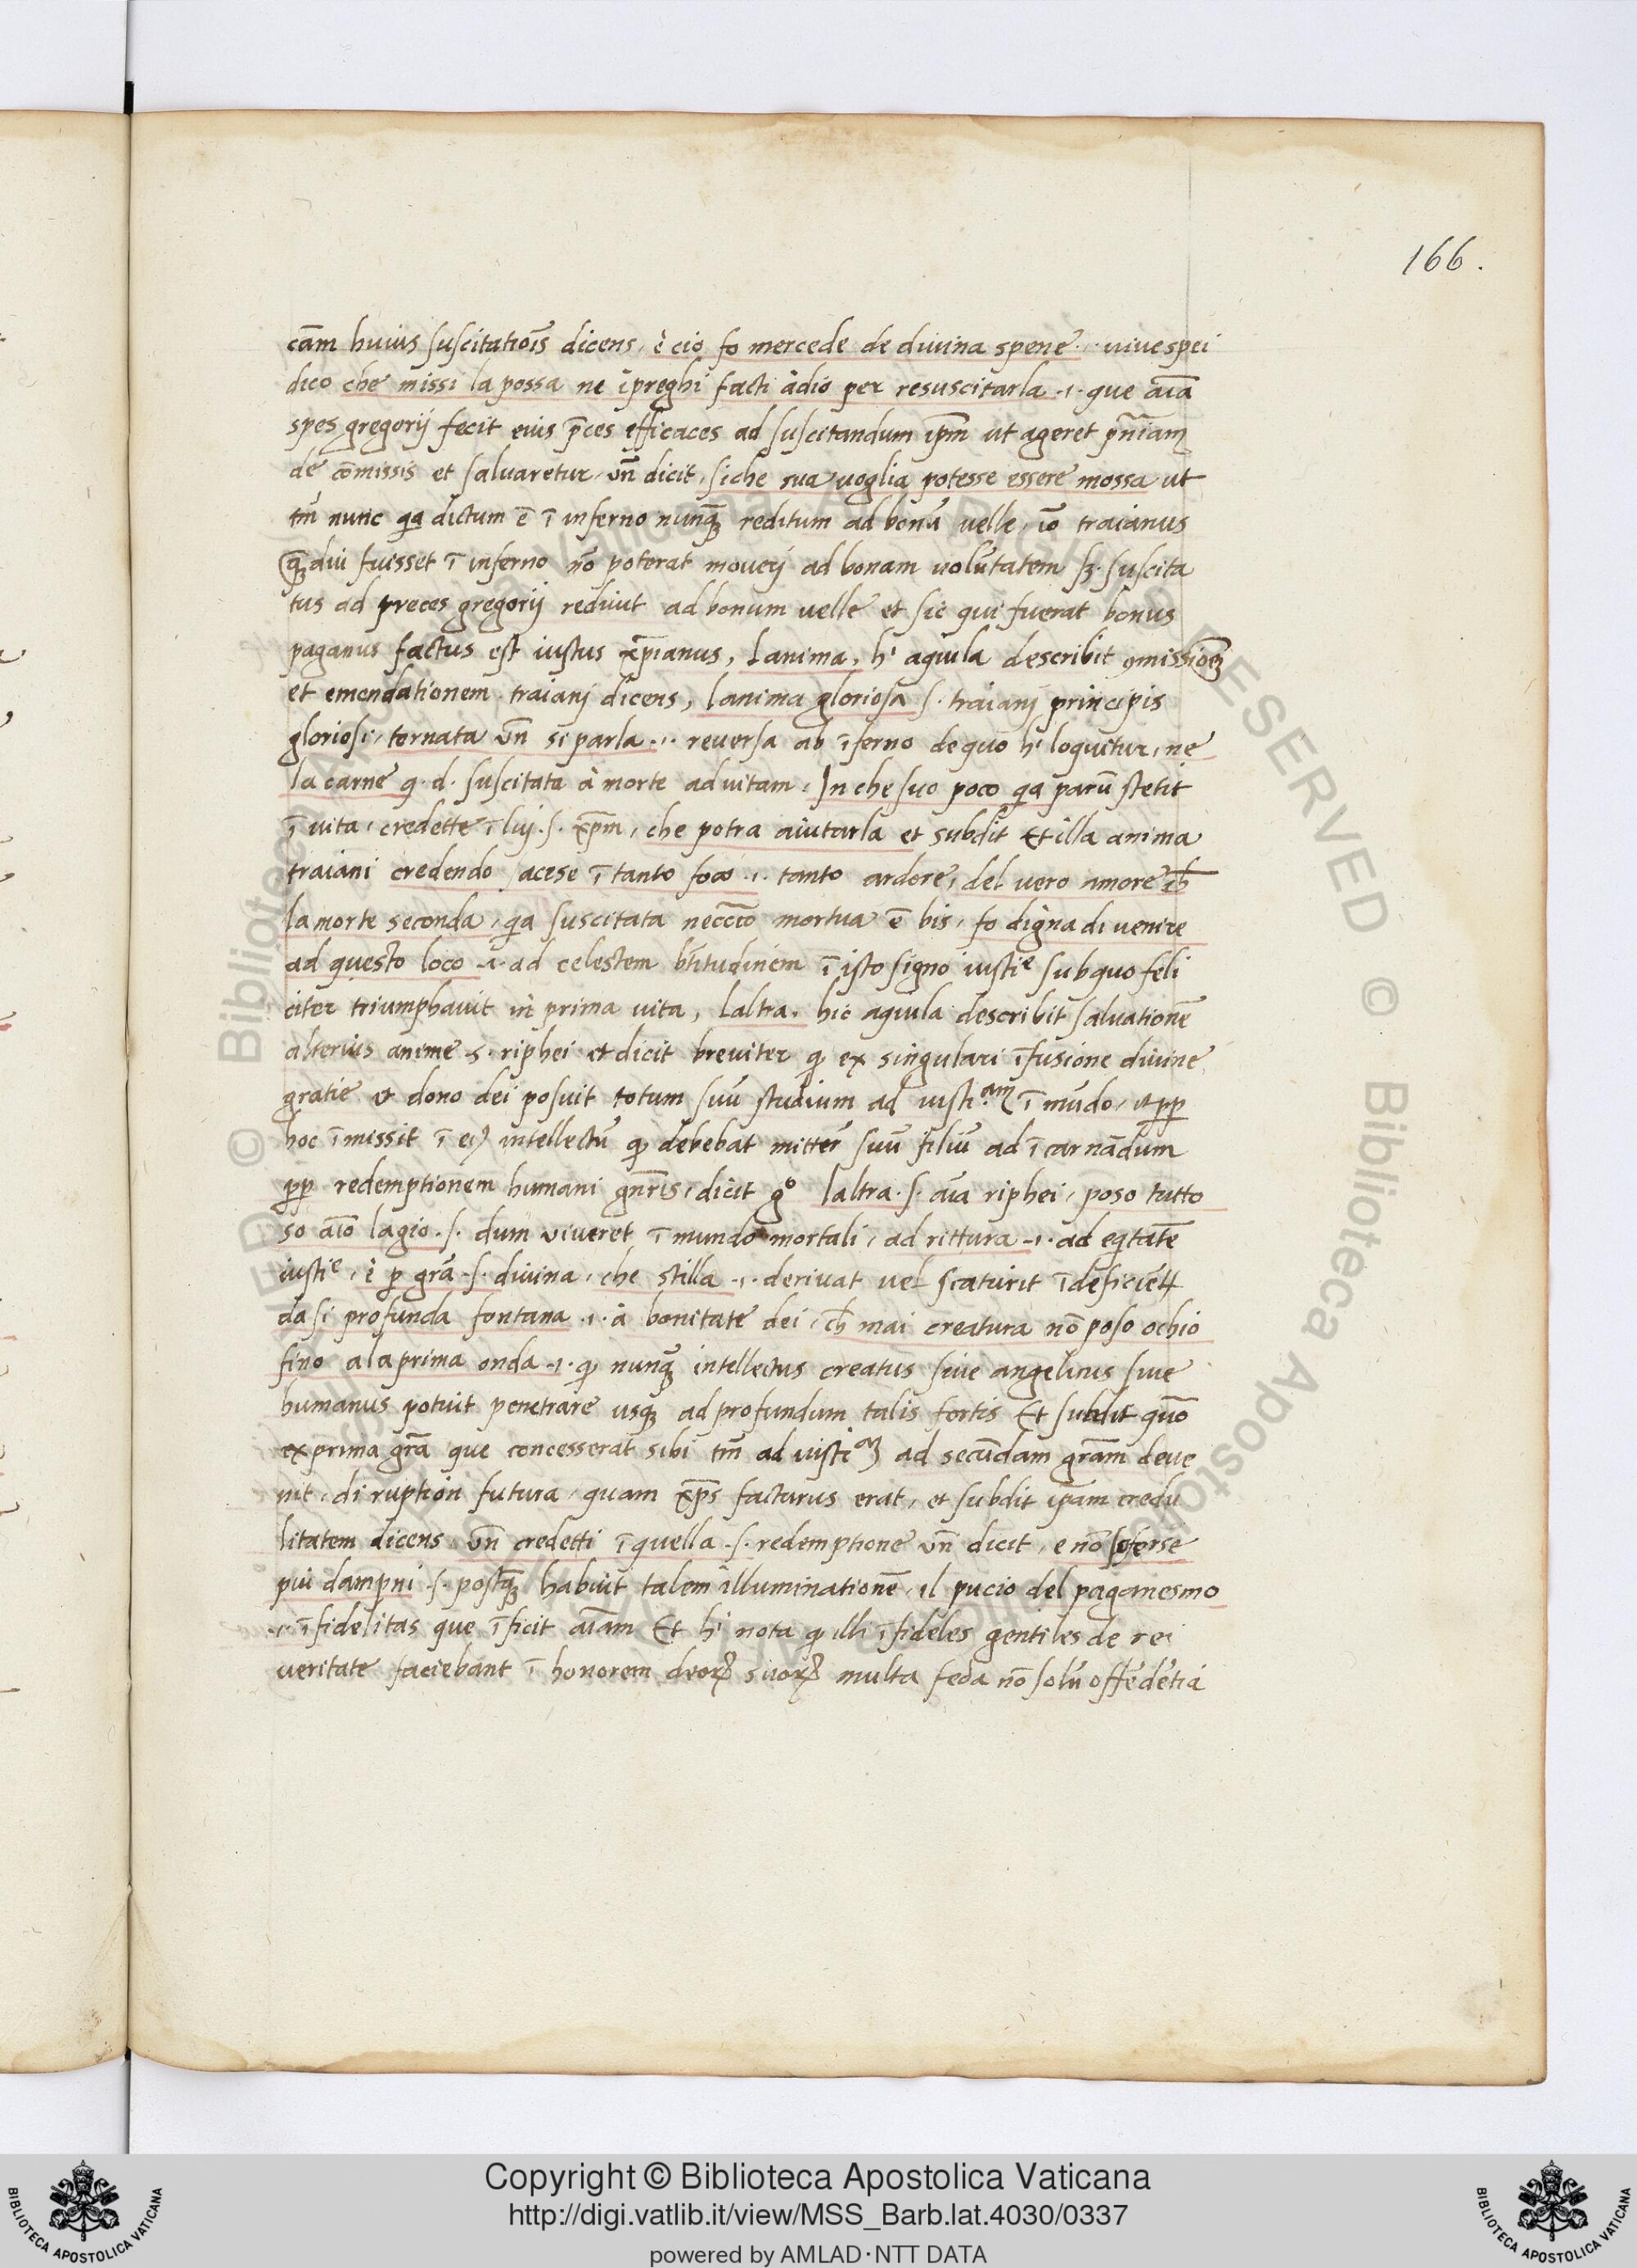 166.
cām huius suscitatiōis dicens, è cio fo mercede de divina spene .. vive spei
dico che missi la possa ne ipreghi facti àdio per resuscitarla .i. que aīa
spes gregorij fecit eius p̄ces efficaces ad suscitandum ip̄m ut ageret p̄niam
de cōmissis et salvaretur, un̄ dicit, siche sua voglia potesse essere mossa ut
tm̄ nunc qa dictum ē ī inferno nunq̄ reditum ad bonū velle, iō traianus
q̄ diu fuisset ī inferno nō poterat moverj ad bonam volūtatem sꝫ suscita
tus ad preces gregorij redivit ad bonum velle et sic qui fuerat bonus
paganus factus est iustus xp̄ianus, Lanima, h' aquila describit ꝯmissionēꝫ
et emendationem traianj dicens, lanima gloriosa .s. traianj principis
gloriosi, tornata un̄ si parla .i. reversa ab īferno de quo h' loquitur, ne
la carne q. d. suscitata à morte ad vitam, In che suo poco qa parū stetit
ī vita, credette ī lui .s. xp̄m, che potra aiutarla et subdit Et illa anima
traiani credendo sacese ī tanto foco .i. tanto ardore, del vero amore cħ
la morte seconda, qa suscitata neccīo mortua ē bis, fo digna di venire
ad questo loco .i. ad celestem btītudinem ī isto signo iustie sub quo feli
citer triumphavit in prima vita, Laltra, hic aquila describit salvationē
alterius anime .s. riphei et dicit breviter ꝙ ex singulari īfusione divine
gratie et dono dei posuit totum suū studium ad iusti.am ī mūdo, et ꝓp
hoc īmissit ī eiꝰ intellectū ꝙ debebat mitter̄ suū filiū ad īcarnādum
ꝓp redemptionem humani gn̄ris, dicit gº laltra .s. aīa riphei, poso tutto
so aīo lagio .s. dum viveret ī mundo mortali, ad rittura .i. ad eqtātē
iustie, è ꝑ grā .s. divina, che stilla .i. derivat vel scaturit īdeficien̄t
da si profunda fontana .i. à bonitate dei, cħ mai creatura nō poso ochio
fino a la prima onda .i. ꝙ nunq̄ intellectus creatus sive angelicus sive
humanus potuit penetrare usqꝫ ad profundum talis fortis Et subdit quō
ex prima grā que concesserat sibi tm̄ ad iustiam ad secūdam grām deve
nit, di ruption futura, quam xp̄s facturus erat, et subdit ip̄am credu
litatem dicens un̄ credetti ī quella .s. redemptione un̄ dicit, e nō soferse
piu dampni .s. postq̄ habuit talem illuminationē, il pucio del paganesmo
.i. īfidelitas que īficit aīam Et h' nota ꝙ illi īfideles gentiles de rei
veritate faciebant ī honorem deorꝝ suorꝝ multa feda nō solū offēdētia
Copyright © Biblioteca Apostolica Vaticana
http://digi.vatlib.it/view/MSS_Barb.lat.4030/0337
powered by AMLAD·NTT DATA
BIBLIOTECA APOSTOLICA VATICANA
BIBLIOTECA APOSTOLICA VATICANA